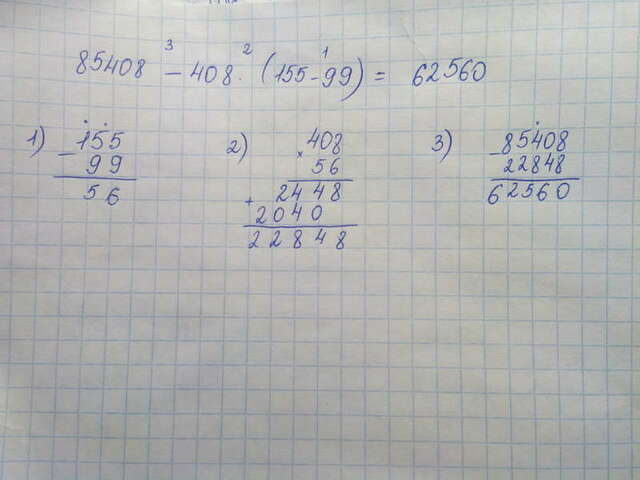 85408 - 408 · (155-99) = 62560
3 2 1
1) 155 - 99 56
2) 408 × 56 2448 + 2040 22848
3) 85408 - 22848 62560